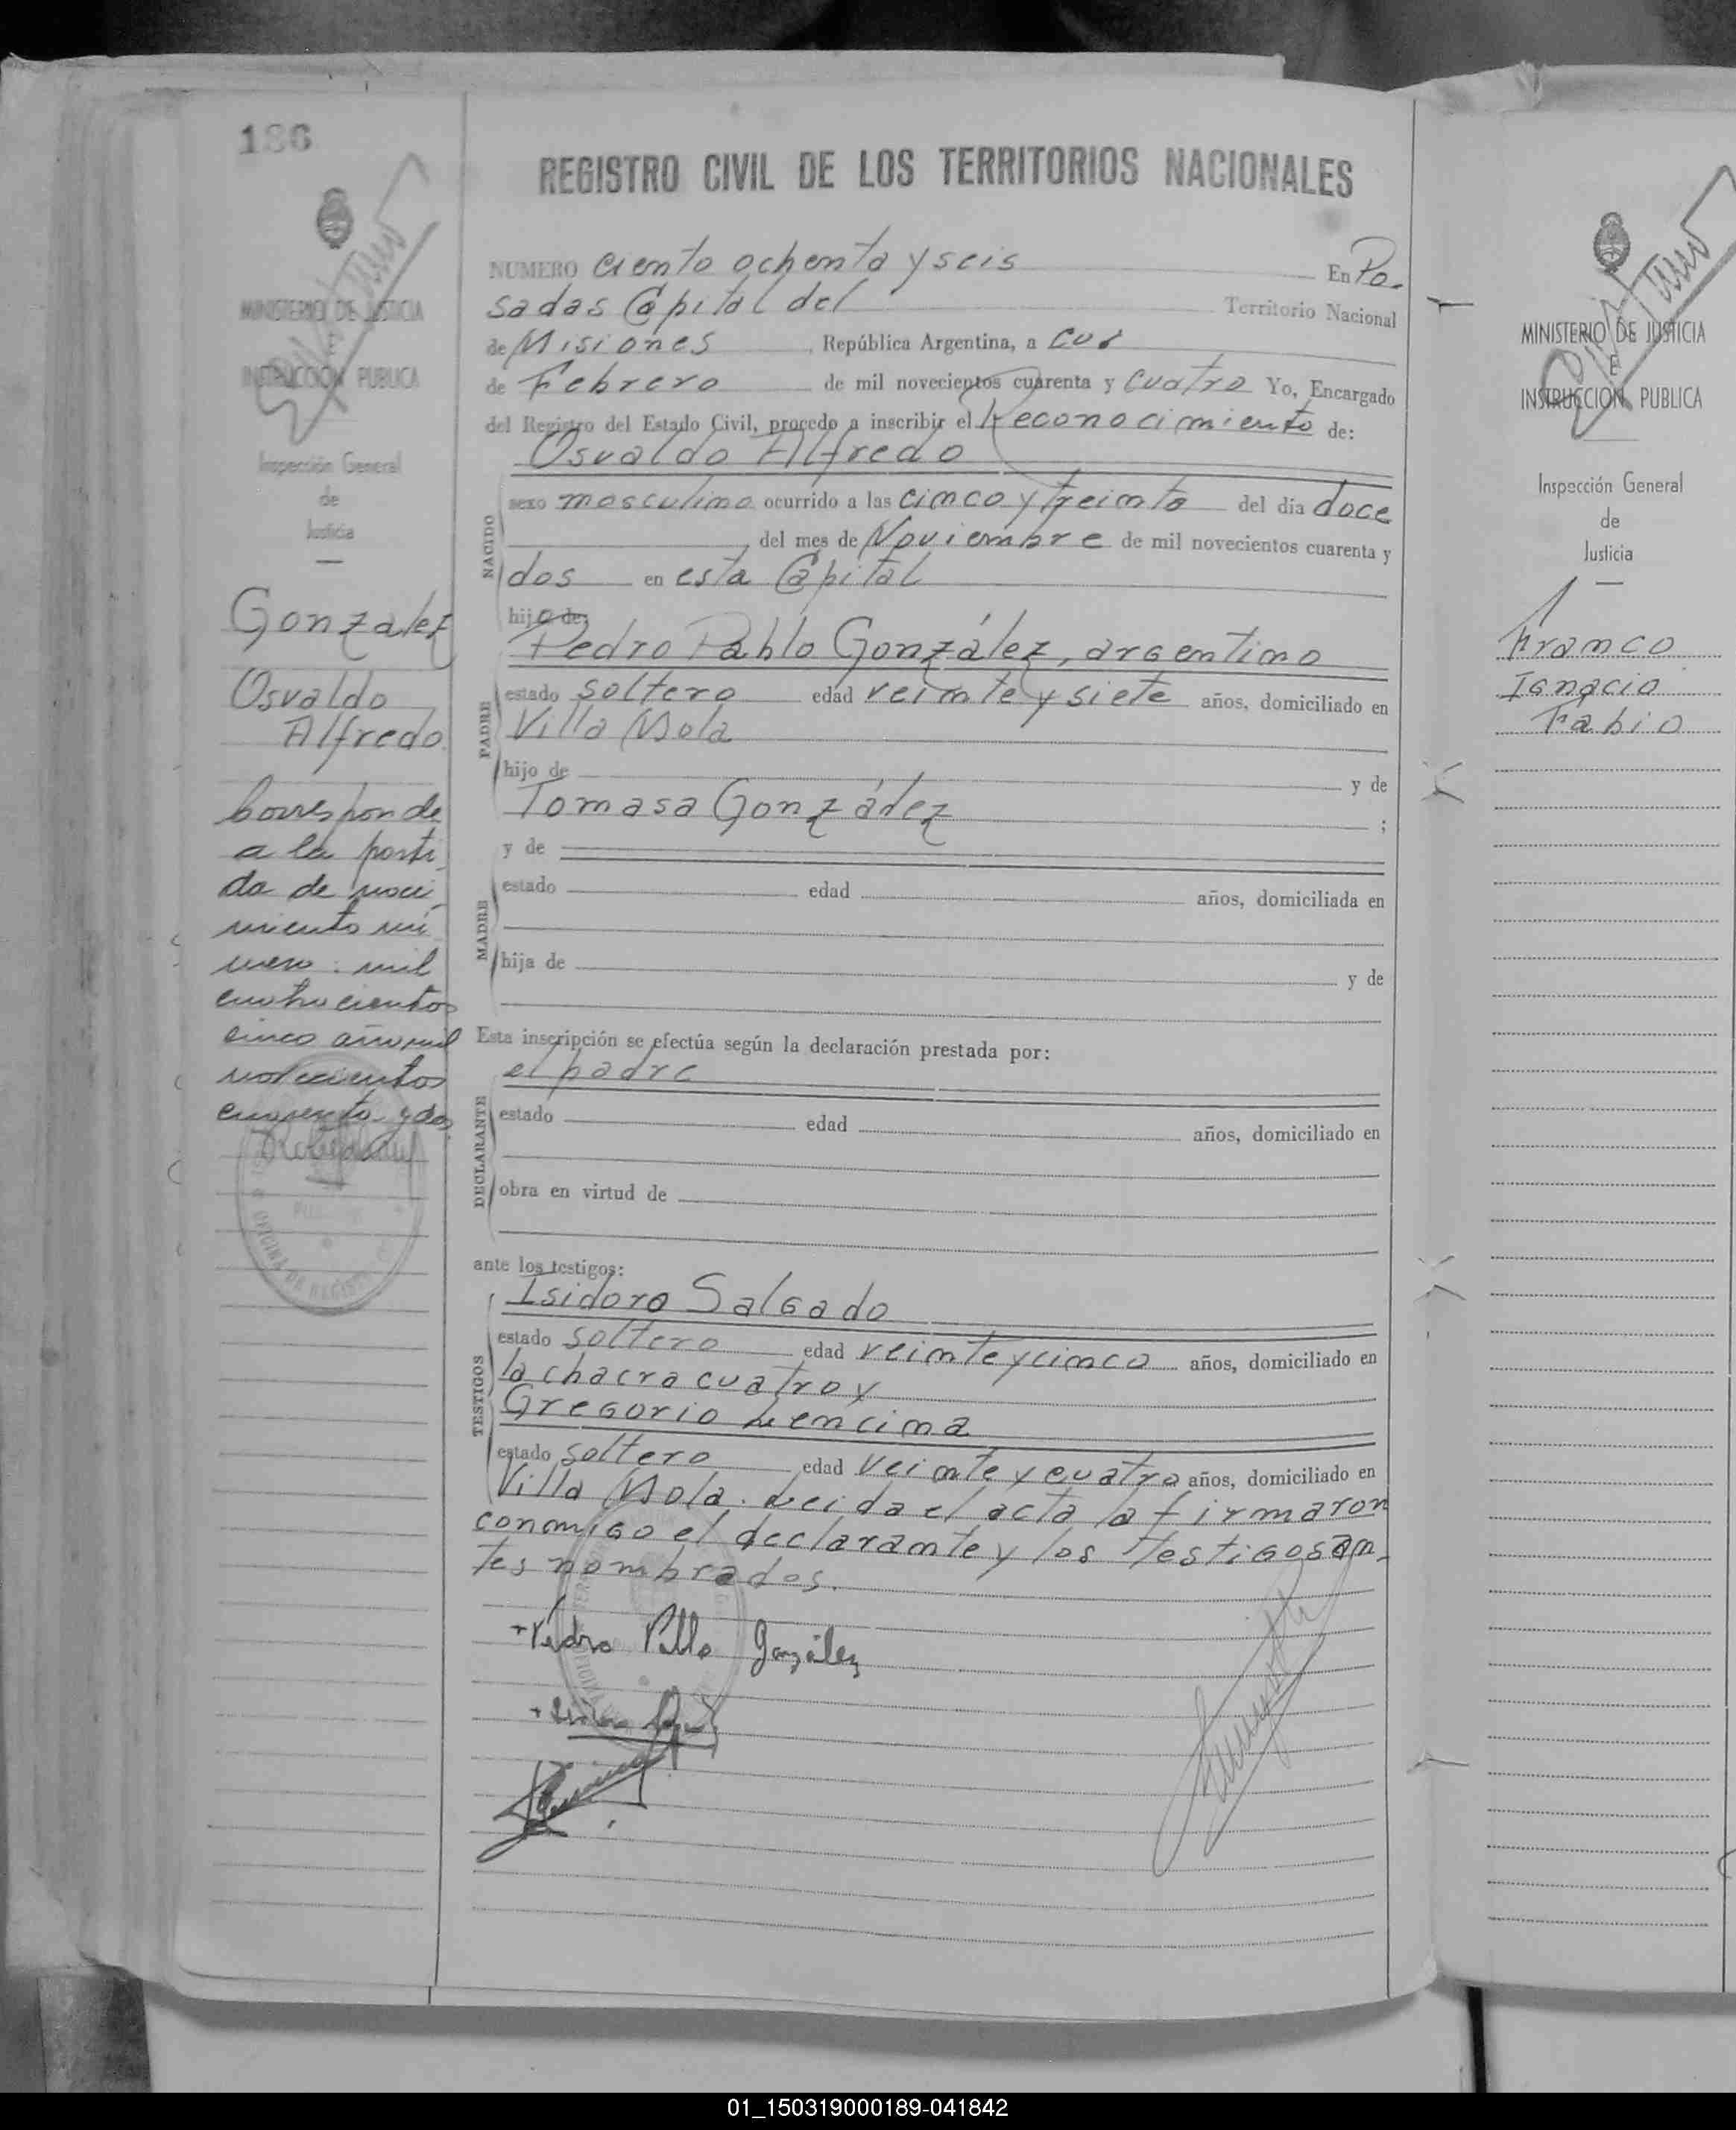 186
MINISTERIO DE JUSTICIA
E
INSTRUCCION PUBLICA
Inspección General
de
Justicia
Gonzalez
Osvaldo
Alfredo
Corresponde
a la parti
da de naci
miento nú
mero: mil
cuatrocientos
cinco año mil
novecientos
cuarenta y dos
REGISTRO CIVIL DE LOS TERRITORIOS NACIONALES
NUMERO ciento ochenta y seis En Po-
sadas Capital del Territorio Nacional
de Misiones, República Argentina, a
de Febrero de mil novecientos cuarenta y cuatro Yo, Encargado
del Registro del Estado Civil, procedo a inscribir el Reconocimiento de:
Osvaldo Alfredo
NACIDO
sexo masculino ocurrido a las cinco y treinta del dia doce
del mes de Noviembre de mil novecientos cuarenta y
dos en esta Capital
hijo de:
Pedro Pablo González, argentino
PADRE
estado soltero edad veinte y siete años, domiciliado en
Villa Mola
hijo de y de
Tomasa González ;
y de
MADRE
estado edad años, domiciliada en
hija de y de
Esta inscripción se efectúa según la declaración prestada por:
el padre
DECLARANTE
estado edad años, domiciliado en
obra en virtud de
ante los testigos:
Isidoro Salgado
TESTIGOS
estado soltero edad veinte y cinco años, domiciliado en
la chacra cuatro y
Gregorio Lencina
estado soltero edad veinte y cuatro años, domiciliado en
Villa Mola. Leida el acta la firmaron
conmigo el declarante y los testigos an-
tes nombrados.
Pedro Pablo González
MINISTERIO DE JUSTICIA
E
INSTRUCCION PUBLICA
Inspección General
de
Justicia
Franco
Ignacio
Fabio
01_150319000189-041842